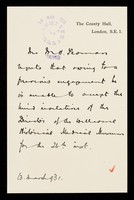 The County Hall,
London, S.E. 1.
regrets that owing to a
previous engagement he
is unable to accept the
kind invitation of the
Director of the Wellcome
Historical Medical Museum
for the 26th inst.